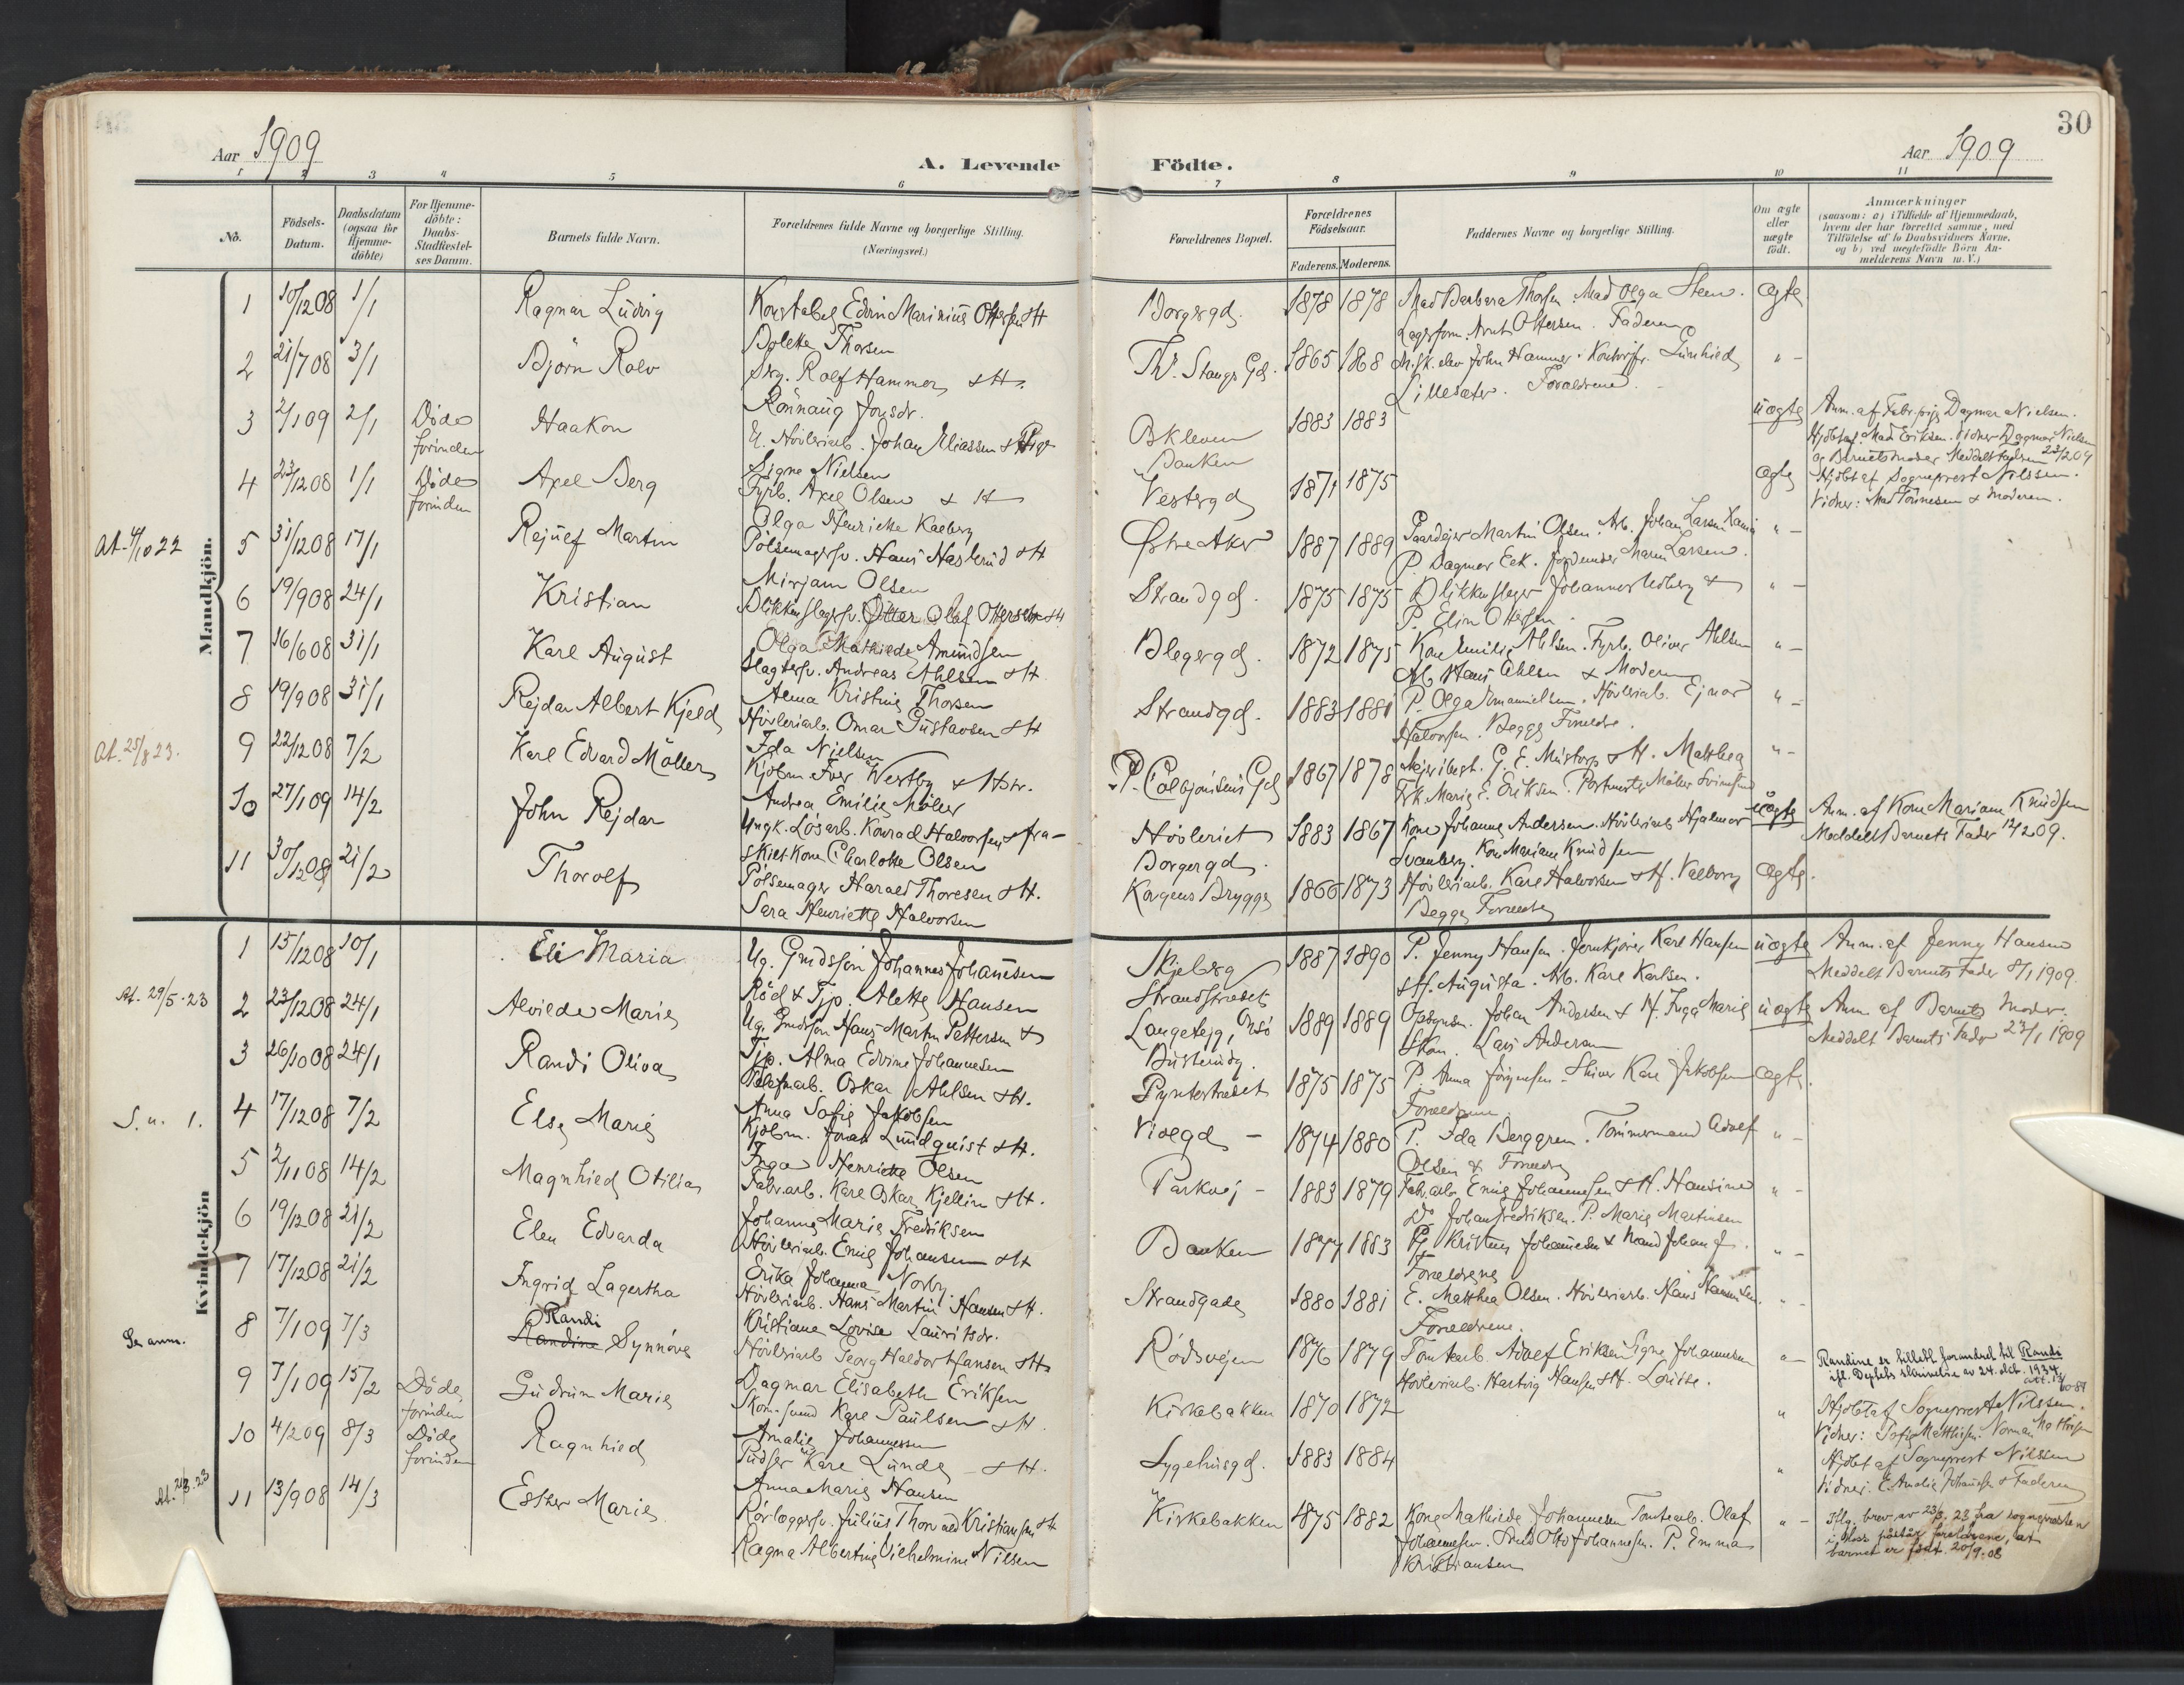 30
Aar 1909
A. Levende Födte.
Aar 1909
1 2 3 4 5 6 7 8 9 10 11
No.
Födsels-Datum.
Daabsdatum (ogsaa for Hjemme-döbte)
For Hjemme-döbte: Daabs-Stadfæstel-ses Datum.
Barnets fulde Navn.
Forældrenes fulde Navne og borgerlige Stilling. (Næringsvei.)
Forældrenes Bopæl.
Forældrenes Födselsaar.
Faderens. Moderens.
Faddernes Navne og borgerlige Stilling.
Om ægte eller uægte födt.
Anmærkninger
(saasom: a) i Tilfælde af Hjemmedaab, hvem der har forrettet samme, med Tilföielse af to Daabsvidners Navne, og b) ved uægtefödte Börn An-melderens Navn m. V.)
Mandkjön.
1 10/12 08 1/1 Ragnar Ludvig Konstabel Edvin Marinius Ottersen & H Borgergd. 1878 1878 Mad Barbara Thorsen. Mad Olga Steen. ægte
Bolette Thorsen Lagerform. Arnt Ottersen. Faderen
2 21/7 08 3/1 Björn Rolv Skr. Rolf Hammer & H. Th. Stangs Gd. 1865 1868 John Hammer. Lillesæter. Forældrene. " -
Rönnaug Jonsdr.
3 2/1 09 2/1 Döde forinden Haakon U. Hövleriarb. Johan Eliassen & Pige Askleven 1883 1883 uægte Anm. af Fabr.pige Dagmar Nielsen.
Signe Nielsen Banken Hjdbt af Mad Eriksen. Vidner Dagmar Nielsen
og Barnets moder. Meddelt Faderen 23/2 09
4 23/12 08 1/1 Döde forinden Axel Berg Fyrb. Axel Olsen & H Vestergd 1871 1875 ægte Hjdbt af Sogneprest Nilssen.
Olga Henriette Kaeberg Vidner: Mad Tönnesen & Moderen.
At. 4/10 22 5 31/12 08 17/1 Rejulf Martin Pölsemagersv. Hans Haslerud & H Østre Aker 1887 1889 Gaardejer Martin Olsen. Arb. Johan Larsen " -
Mirjam Olsen P. Dagmar Eek. Maren Larsen.
6 19/9 08 24/1 Kristian Blikkenslagersv. Otter Olaf Ottersen & H. Strandgd. 1875 1875 Blikkenslager Johannes Hedberg & " -
Olga Mathilde Amundsen P. Elin Ottersen.
7 16/6 08 31/1 Karl August Slagtersv. Andreas Ahlsen & H. Blegergd. 1872 1875 Kone Emilie Ahlsen. Fyrb. Oliver Ahlsen " -
Alma Kristine Thorsen Arb. Hans Ahlsen & Moderen
8 19/9 08 31/1 Rejdar Albert Kjeld Hövleriarb. Omar Gustavsen & H Strandgd. 1883 1881 P. Olga Emanuelsen. Hövleriarb. Ejnar " -
Ida Nielsen Halvorsen. Begge Forældre.
At. 25/8 23. 9 22/12 08 7/2 Karl Edvard Möller Kjöbm. Iver Westby & Hstr. P. Colbjörnsens Gd 1867 1878 Mejeribest. G. E. Mustorp & H. Matthea " -
Andrea Emilie Möller Frk. Marie E. Eriksen. Portnerske Möller Svinesund
10 27/1 09 14/2 John Rejdar Ungk. Lösarb. Konrad Halvorsen & fra- Hövleriet 1883 1867 Kone Johanne Andersen. Hövleriarb. Hjalmar uægte Anm. af Kone Mariane Knudsen
skilt Kone Charlotte Olsen Borgergd. Svanberg. Kone Mariane Knudsen Meddelt Barnets Fader 12/2 09.
11 30/12 08 21/2 Thorolf Pölsemager Harald Thoresen & H. Kongens Brygge 1866 1873 Hövleriarb. Karl Halvorsen & H. Valborg ægte.
Sara Henriette Halvorsen Begge Forældre
Kvindekjön
1 15/12 08 10/1 Eli Maria Ug. Gmdssön Johannes Johannesen Skjeberg 1887 1890 P. Jenny Hansen. Jernkjörer Karl Hansen uægte Anm. af Jenny Hansen
Röd & Tjp. Alette Hansen Strandstrædet & H. Augusta. Arb. Karl Karlsen. Meddelt Barnets Fader 8/1 1909.
At. 29/5.23 2 23/12 08 24/1 Alvilde Marie Ug. Gmdssön Hans Martin Pettersen & Langetejg, Onsö 1889 1889 Opsynsm. Johan Andersen & H. Inga Marie uægte Anm. af Barnets Moder.
Tjp. Alma Edvine Johannesen Busterudg. Skom. Lars Andersen Meddelt Barnets Fader 23/1 1909
3 26/10 08 24/1 Randi Oliva Telefonarb. Oskar Ahlsen & H. Pynterstrædet 1875 1875 P. Anna Jörgensen. Skriver Karl Jakobsen ægte.
Anna Sofie Jakobsen Forældrene
S. u. 1. 4 17/12 08 7/2 Else Marie Kjöbm. Johan Lundquist & H. Violgd - 1874 1880 P. Ida Berggren. Tömmermand Adolf " -
Inga Henriette Olsen Olsen & Forældre
5 2/11 08 14/2 Magnhild Otilia Fabr.arb. Karl Oskar Kjellin & H. Parkvej - 1883 1879 Fabr.arb. Emil Johannesen & H. Hansine " -
Johanne Marie Fredriksen Do Johan Fredriksen. P. Marie Martinsen
6 19/12 08 21/2 Elen Edvarda Hövleriarb. Emil Johansen & H Banken 1877 1883 Pg. Kristine Johannesen & Mand Johan J. " -
Erika Johanna Norby Forældrene
7 17/12 08 21/2 Ingrid Lagertha Hövleriarb. Hans Martin Hansen & H. Strandgade 1880 1881 E. Matthea Olsen. Hövleriarb. Hans Hansen. " -
Kristiane Lovise Lauritsdr. Forældrene.
Se anm. 8 7/1 09 7/3 Randi Randine Synnöve Hövleriarb Georg Haldor Hansen & H Rödsvejen 1876 1879 Tomtearb. Adolf Eriksen Signe Johannesen " - Randine er tillatt forandret til Randi
Dagmar Elisabeth Eriksen Hövleriarb. Hartvig Hansen & H. Lovise. ifl. Dep.tets skrivelse av 24. okt. 1934
9 7/1 09 15/2 Döde forinden Gudrun Marie Skom.svend Karl Paulsen & H. Kirkebakken 1870 1872 " Hjdbt af Sogneprest Nilssen.
Amalie Johannessen Vidner: Sofie Matthisen. Norman Mathisen
10 4/2 09 8/3 Döde forinden Ragnhild Pudser Karl Lunde - & H. Sygehusgd. 1883 1884 " Hjdbt af Sogneprest Nilssen
Anna Marie Hansen Vidner: E. Amalie Johansen & Faderen
At. 21/3 23 11 13/9 08 14/3 Esther Marie Rörlæggersv. Julius Thorvald Kristiansen & H Kirkebakken 1875 1882 Kone Mathilde Johannesen Tomtearb. Olaf " - Iflg. brev av 23/3. 23 fra sognepresten
Ragna Albertine Vilhelmine Nilsen Johannesen. Svend Otto Johannesen. P. Emma i Moss påstår foreldrene, at
Kristiansen barnet er födt. 20/9.08